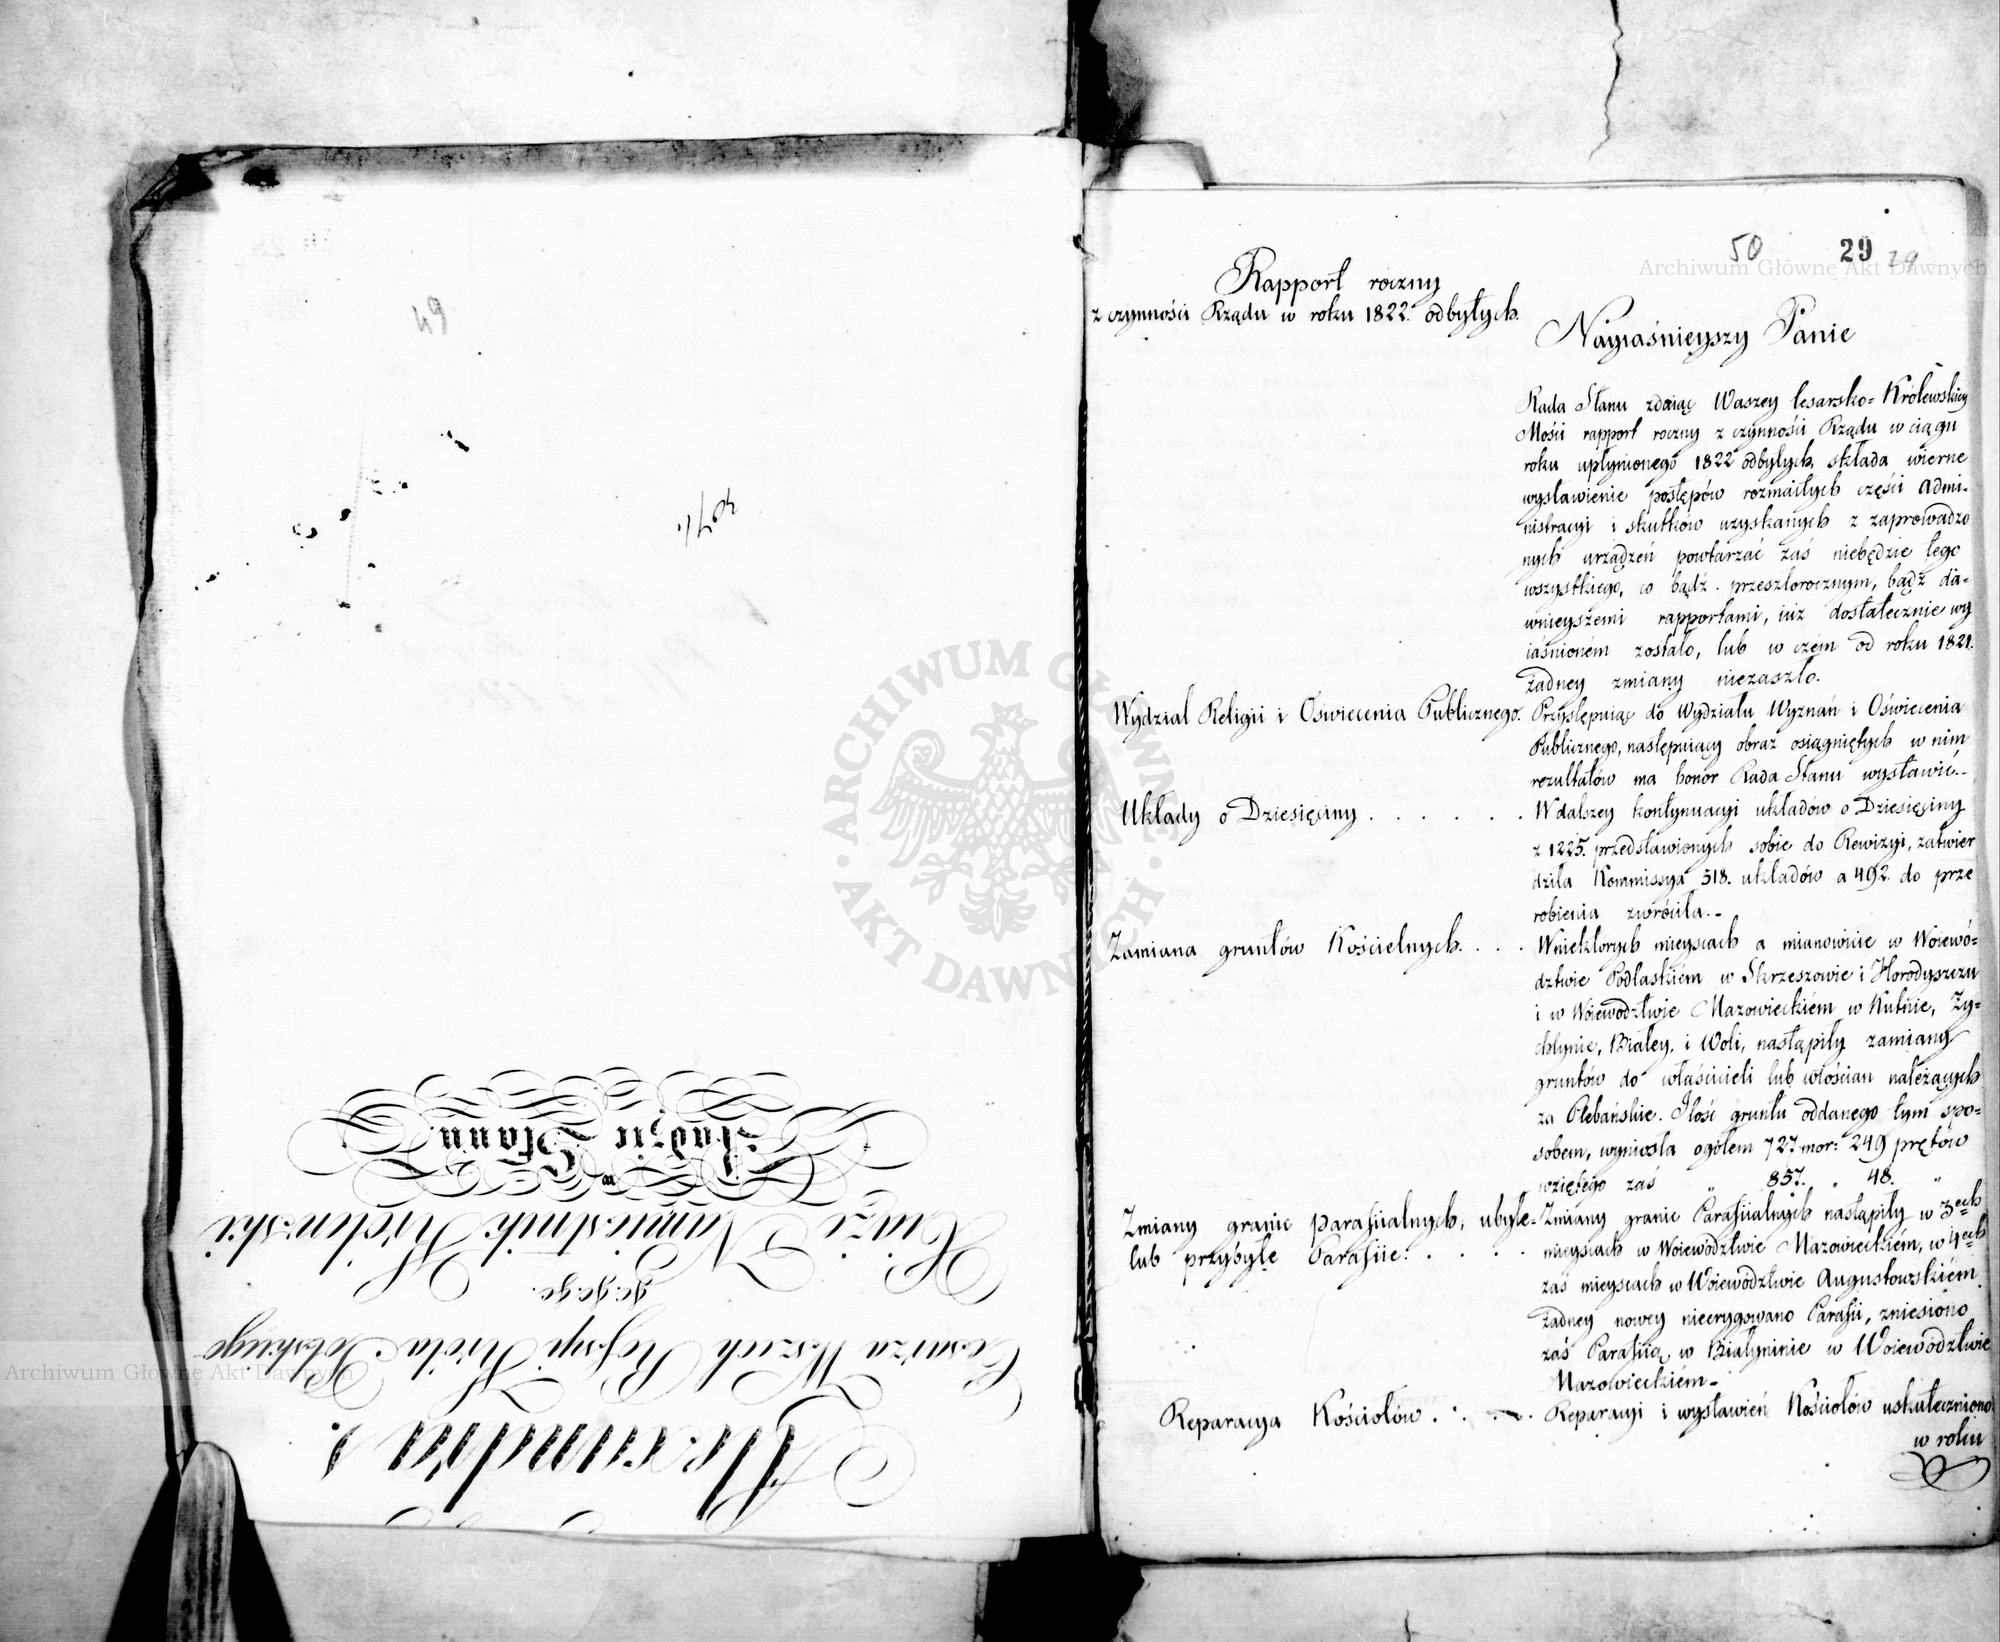 49
Alexander I.
Cesarz Wszech Rossyi Król Polskiego
&c. &c. &c.
Xiąże Namiestnik Królewski
w
Radzie Stanu
50 29 29
Rapport roczny
z czynności Rządu w roku 1822. odbyłych.
Nayiaśnieyszy Panie
Rada Stanu zdaiąc Waszey Cesarsko-Królewskiey
Mości rapport roczny z czynności Rządu w ciągu
roku upłynionego 1822 odbyłych, składa wierne
wystawienie postępów rozmaitych części Admi-
nistracyi i skutków uzyskanych z zaprowadzo
nych urządzeń powtarzać zaś niebędzie tego
wszystkiego, co bądź przeszłorocznym, bądź da-
wnieyszemi rapportami, iuż dostatecznie wy
iaśnioném zostało, lub w czém od roku 1821.
żadney zmiany niezaszło.
Wydział Religii i Oświecenia Publicznego.
Przystępuiąc do Wydziału Wyznań i Oświecenia
Publicznego, następuiący obraz osiągniętych w nim
rezultatów ma honor Rada Stanu wystawić.-
Układy o Dziesięciny . . . . . .
W dalszey kontynuacyi układów o Dziesięciny
z 1225. przedstawionych sobie do Rewizyi, zatwier
dziła Kommissya 518. układów a 492. do prze
robienia zwróciła.-
Zamiana gruntów Kościelnych. . . .
W niektórych mieyscach a mianowicie w Woiewó-
dztwie Podlaskiém w Skrzeszowie i Horodyszczu
i w Woiewództwie Mazowieckiém w Kutnie, Ży-
chlynie, Białey, i Woli, nastąpiły zamiany
gruntów do właścicieli lub włościan należących
za Plebańskie. Ilość gruntu oddanego tym spo-
sobem, wyniosła ogółem 727. mor: 249 prętów
wziętego zaś „ 857. „ 48. „
Zmiany granic parafiialnych, ubyłe-
lub przybyłe Parafiie. . . . .
Zmiany granic Parafiialnych nastąpiły w 3ech
mieyscach w Woiewództwie Mazowieckiém, w 4ech
zaś mieyscach w Woiewództwie Augustowskiém.
żadney nowey nieerygowano Parafii, zniesiono
zaś Parafiią w Białyninie w Woiewództwie
Mazowieckiém-
Reparacya Kościołów . . . .
Reparacyi i wystawień Kościołów uskuteczniono
w roku
Archiwum Główne Akt Dawnych
ARCHIWUM GŁÓWNE · AKT DAWNYCH ·
Archiwum Główne Akt Dawnych